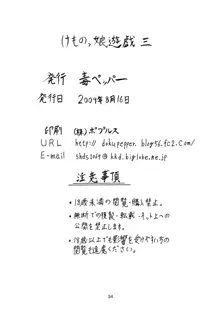 けもの。娘遊戯 三
発行 毒ペッパー
発行日 2009年8月16日
印刷 (株)ポプルス
URL http://dokupepper.blog56.fc2.com/
E-mail shds2069@kkd.biglobe.ne.jp
注意事項
・18歳未満の閲覧・購入禁止。
・無断での複製・転載・ネット上への
公開を禁止します。
・18歳以上でも影響を受けやすい方の
閲覧も遠慮ください。
34